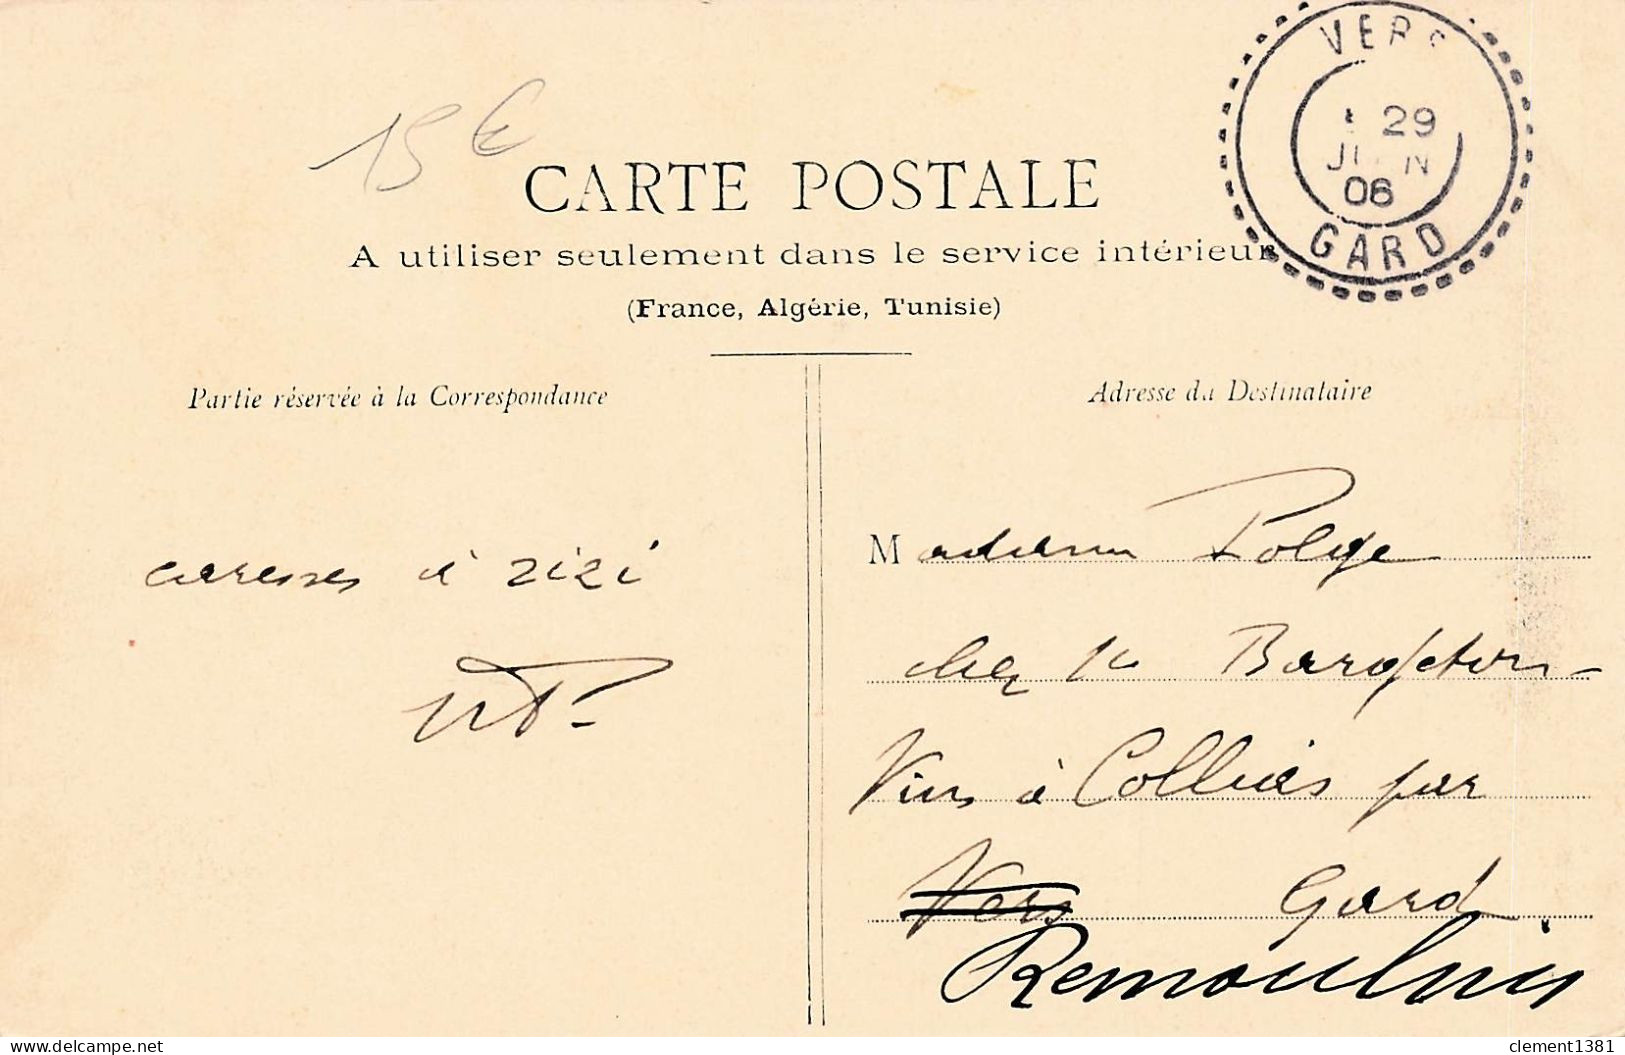 15 €
VERS
29
JUIN
06
GARD
CARTE POSTALE
A utiliser seulement dans le service intérieur
(France, Algérie, Tunisie)
Partie réservée à la Correspondance
caresses à zizi
Adresse du Destinataire
Madame Polge
chez Bargeton
Vins à Collias par
Vers Gard
Remoulins
delcampe.net
clement1381